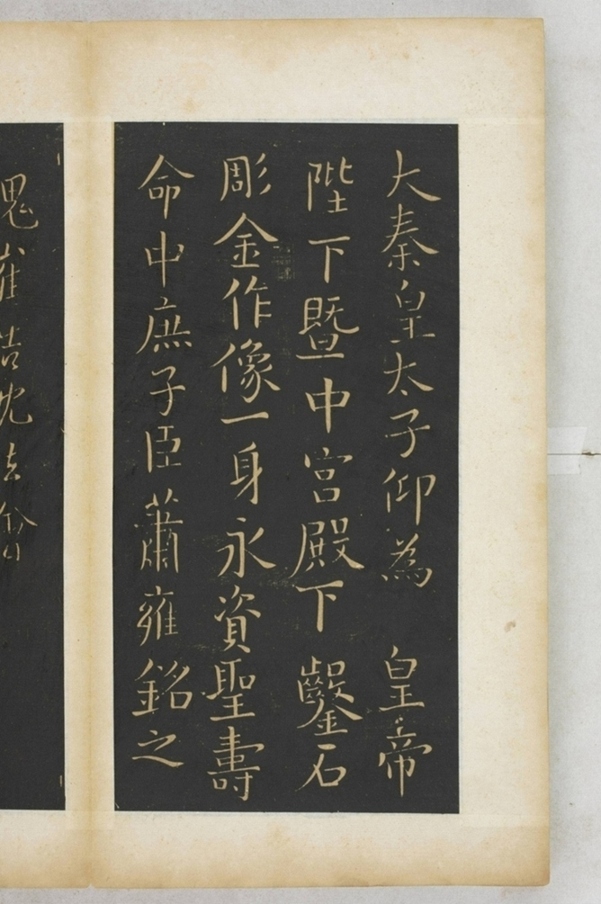 大秦皇太子仰為 皇帝
陛下暨中宮殿下 鑿石
彫金作像一身永資聖壽
命中庶子臣蕭雍銘之